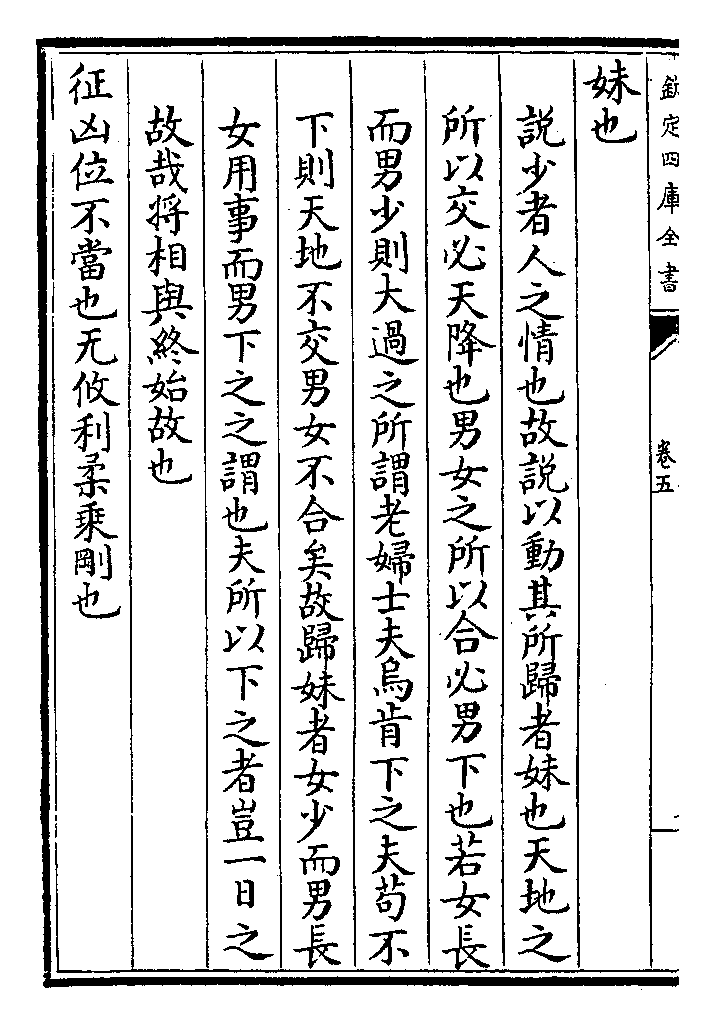 欽定四庫全書
卷五
妹也
說少者人之情也故說以動其所歸者妹也天地之
所以交必天降也男女之所以合必男下也若女長
而男少則大過之所謂老婦士夫烏肯下之夫苟不
下則天地不交男女不合矣故歸妹者女少而男長
女用事而男下之之謂也夫所以下之者豈一日之
故哉將相與終始故也
征凶位不當也无攸利柔乘剛也